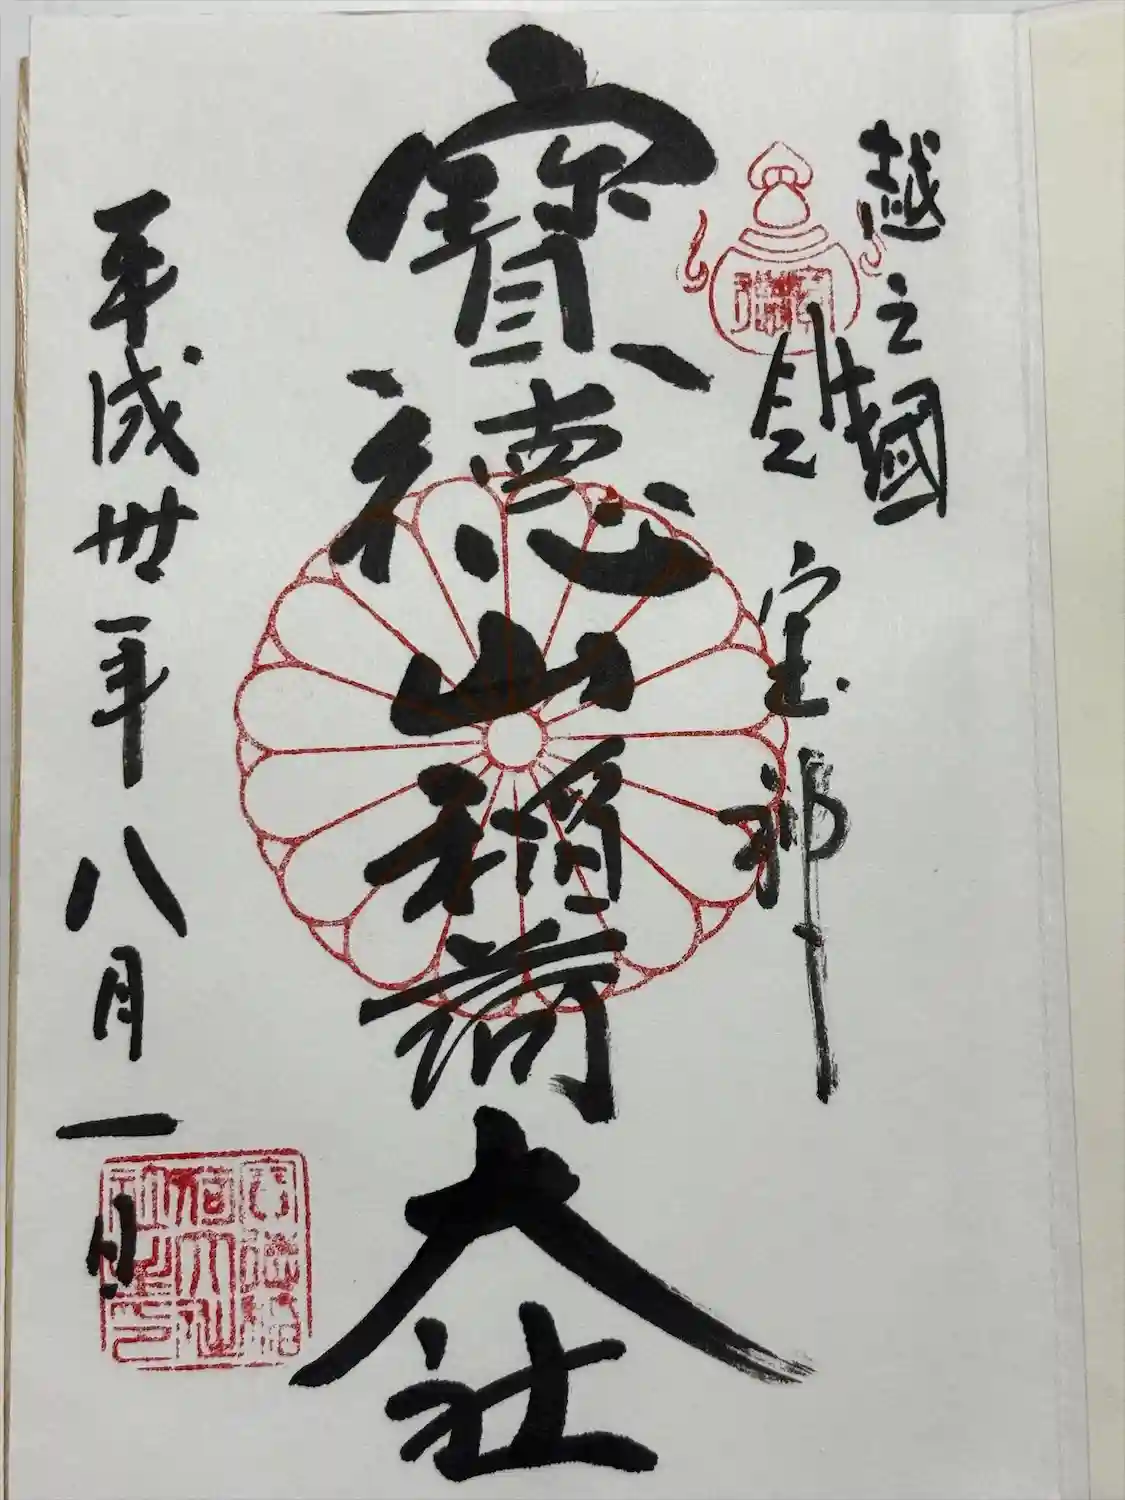 越之國
宝
寶徳山稲荷大社
平成卅年八月一日